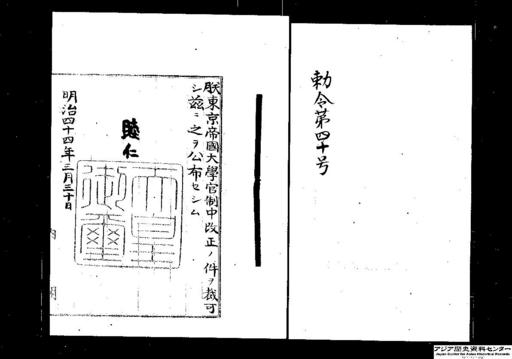 勅令第四十号
朕東京帝國大學官制中改正ノ件ヲ裁可
シ茲ニ之ヲ公布セシム
睦仁
天皇御璽
明治四十四年三月三十日
内閣
アジア歴史資料センター
Japan Center for Asian Historical Records